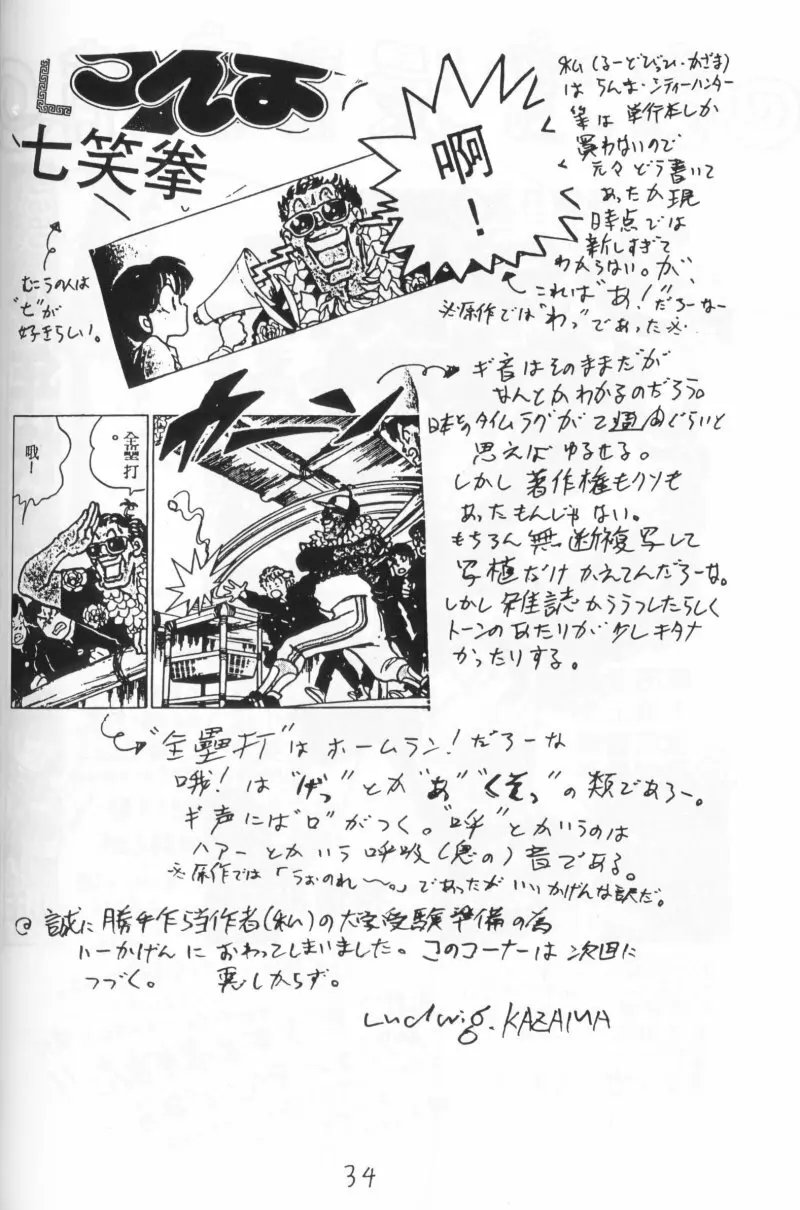 らんま
七笑拳
啊!
私(るーどびひ・かざま)
はらんま・シティーハンター
等は単行本しか
買わないので
元々どう書いて
あったか現
時点では
新しすぎて
わからない。が、
これは"あ!"だろーなー
※原作では"わっ"であった※
むこうの人は
"七"が
好きらしい。
カーン
ギ音はそのままだが
なんとかわかるのだろう。
日本とのタイムラグが2週間ぐらいと
思えばゆるせる。
しかし著作権もクソも
あったもんじゃない。
もちろん無断複写して
写植だけかえてんだろーな。
しかし雑誌からうつしたらしく
トーンのあたりが少しキタナ
かったりする。
全壘打。
哦!
"全壘打"はホームラン!だろーな
哦!は"げっ"とか"あ""くそっ"の類であろー。
ギ声には"口"がつく。"呼"とかいうのは
ハアーとかいう呼吸(息の)音である。
※原作では「うおのれ〜。」であったがいいかげんな訳だ。
@誠に勝手乍ら当作者(私)の大学受験準備の為
いーかげんにおわってしまいました。このコーナーは次回に
つづく。 悪しからず。
Ludwig.KAZAMA
34